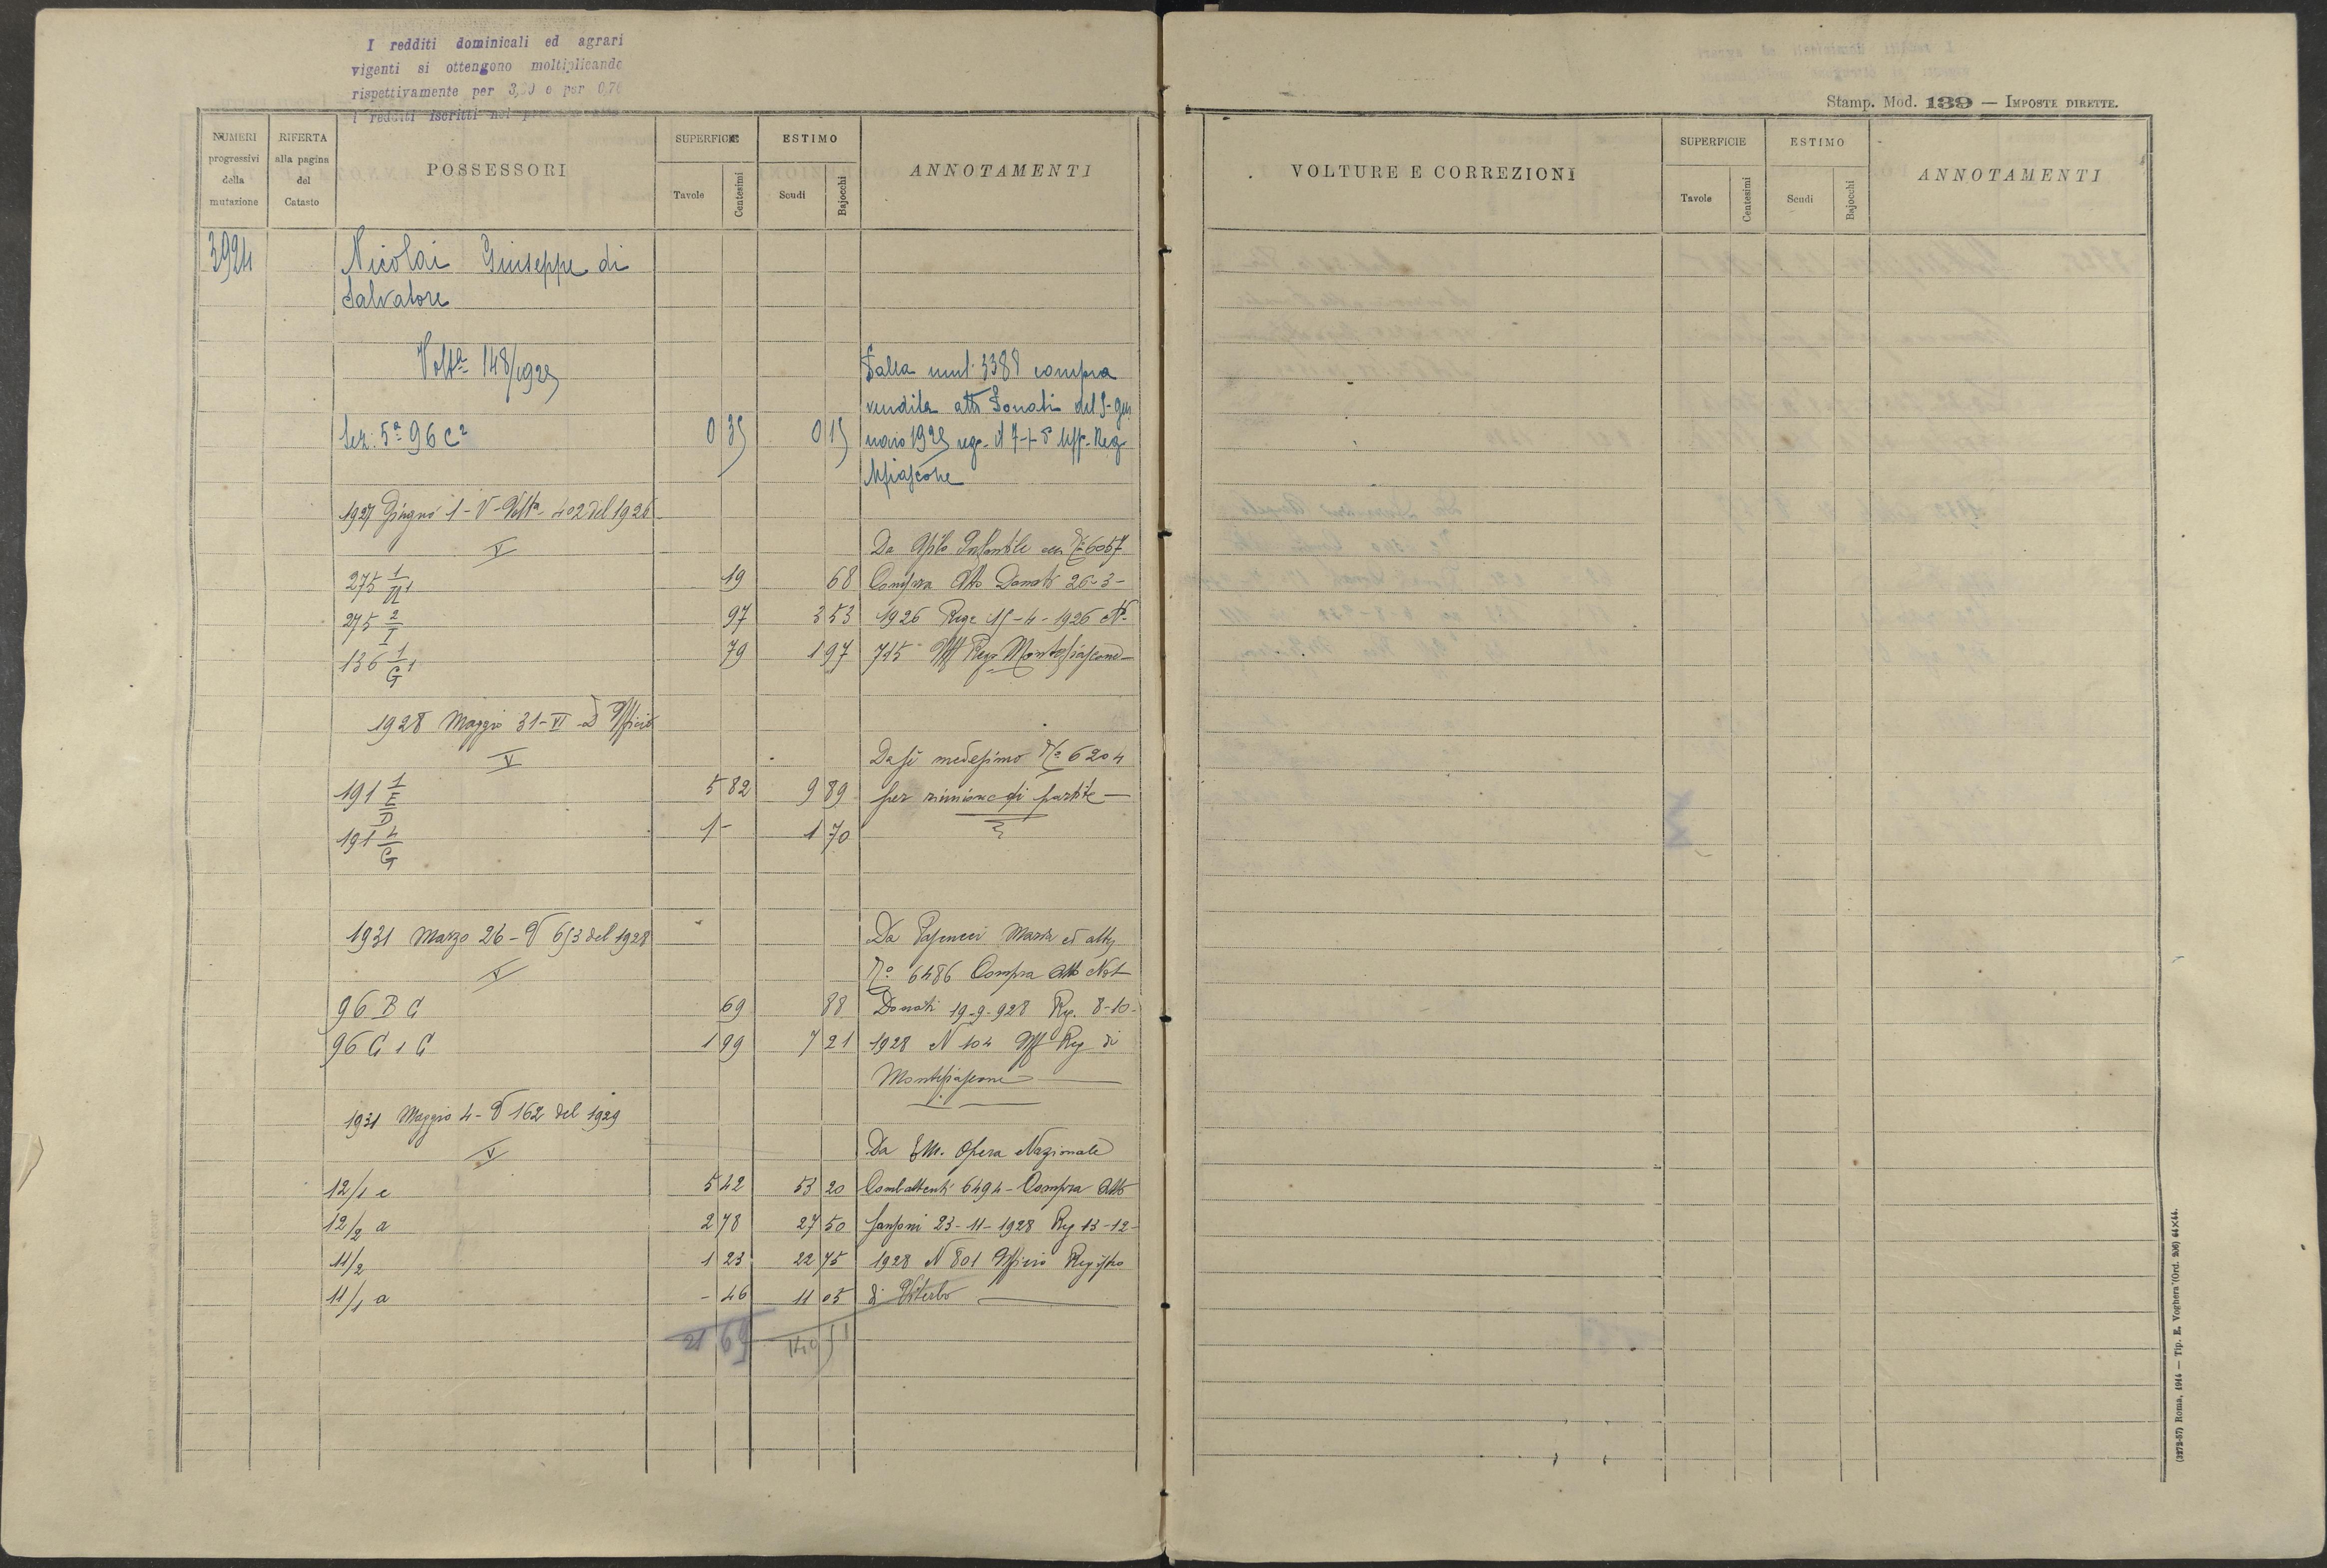 I redditi dominicali ed agrari
vigenti si ottengono moltiplicando
rispettivamente per 3,20 e per 0,76
i redditi iscritti nel
Stamp. Mod. 139 — IMPOSTE DIRETTE.
NUMERI progressivi della mutazione
RIFERTA alla pagina del Catasto
POSSESSORI
SUPERFICIE
Tavole Centesimi
ESTIMO
Scudi Bajocchi
ANNOTAMENTI
3924 Nicolai Giuseppe di
Salvatore
Volta 148/1925 Dalla 3388 compra
vendita atto Donati del 5-gen
Sez: 5ª 96 C² 0 35 0 15 naio 1925 reg. il 7-+ 8 Uff. Reg
Mfiascone
1927 Giugno 1-V-Volta 402 del 1926
V Da Asilo Infantile 6057
275 1/ 19 68 Compra Atto Donati 26-3-
275 2/I 97 3 53 1926 Reg. 15-4-1926 N.
136 1/G1 79 1 97 715 Uff Reg Montefiascone
1928 Maggio 31-VI-D'Ufficio
V Da se medesimo Nº 6204
191 1/E/D 5 82 9 89 per riunione di partite
191 4/G 1 - 1 70
1931 Marzo 26-V 653 del 1928 Da Pasqucci Maria ed altri
V Nº 6486 Compra Atto Not
96 B C 69 88 Donati 19-9-928 Reg. 8-10-
96 C 1 C 1 99 7 21 1928 N 104 Uff Reg di
Montefiascone
1931 Maggio 4-V 162 del 1929
V Da Opera Nazionale
12/1 c 5 42 53 20 Combattenti 6494 - Compra Atto
12/2 a 2 78 27 50 Sansoni 23-11-1928 Reg 13-12-
11/2 1 23 22 75 1928 N 801 Ufficio Registro
11/1 a - 46 11 05 di Viterbo
21 69 140 51
VOLTURE E CORREZIONI
SUPERFICIE
Tavole Centesimi
ESTIMO
Scudi Bajocchi
ANNOTAMENTI
(3272-57) Roma, 1914 — Tip. E. Voghera (Ord. 206) 44×44.